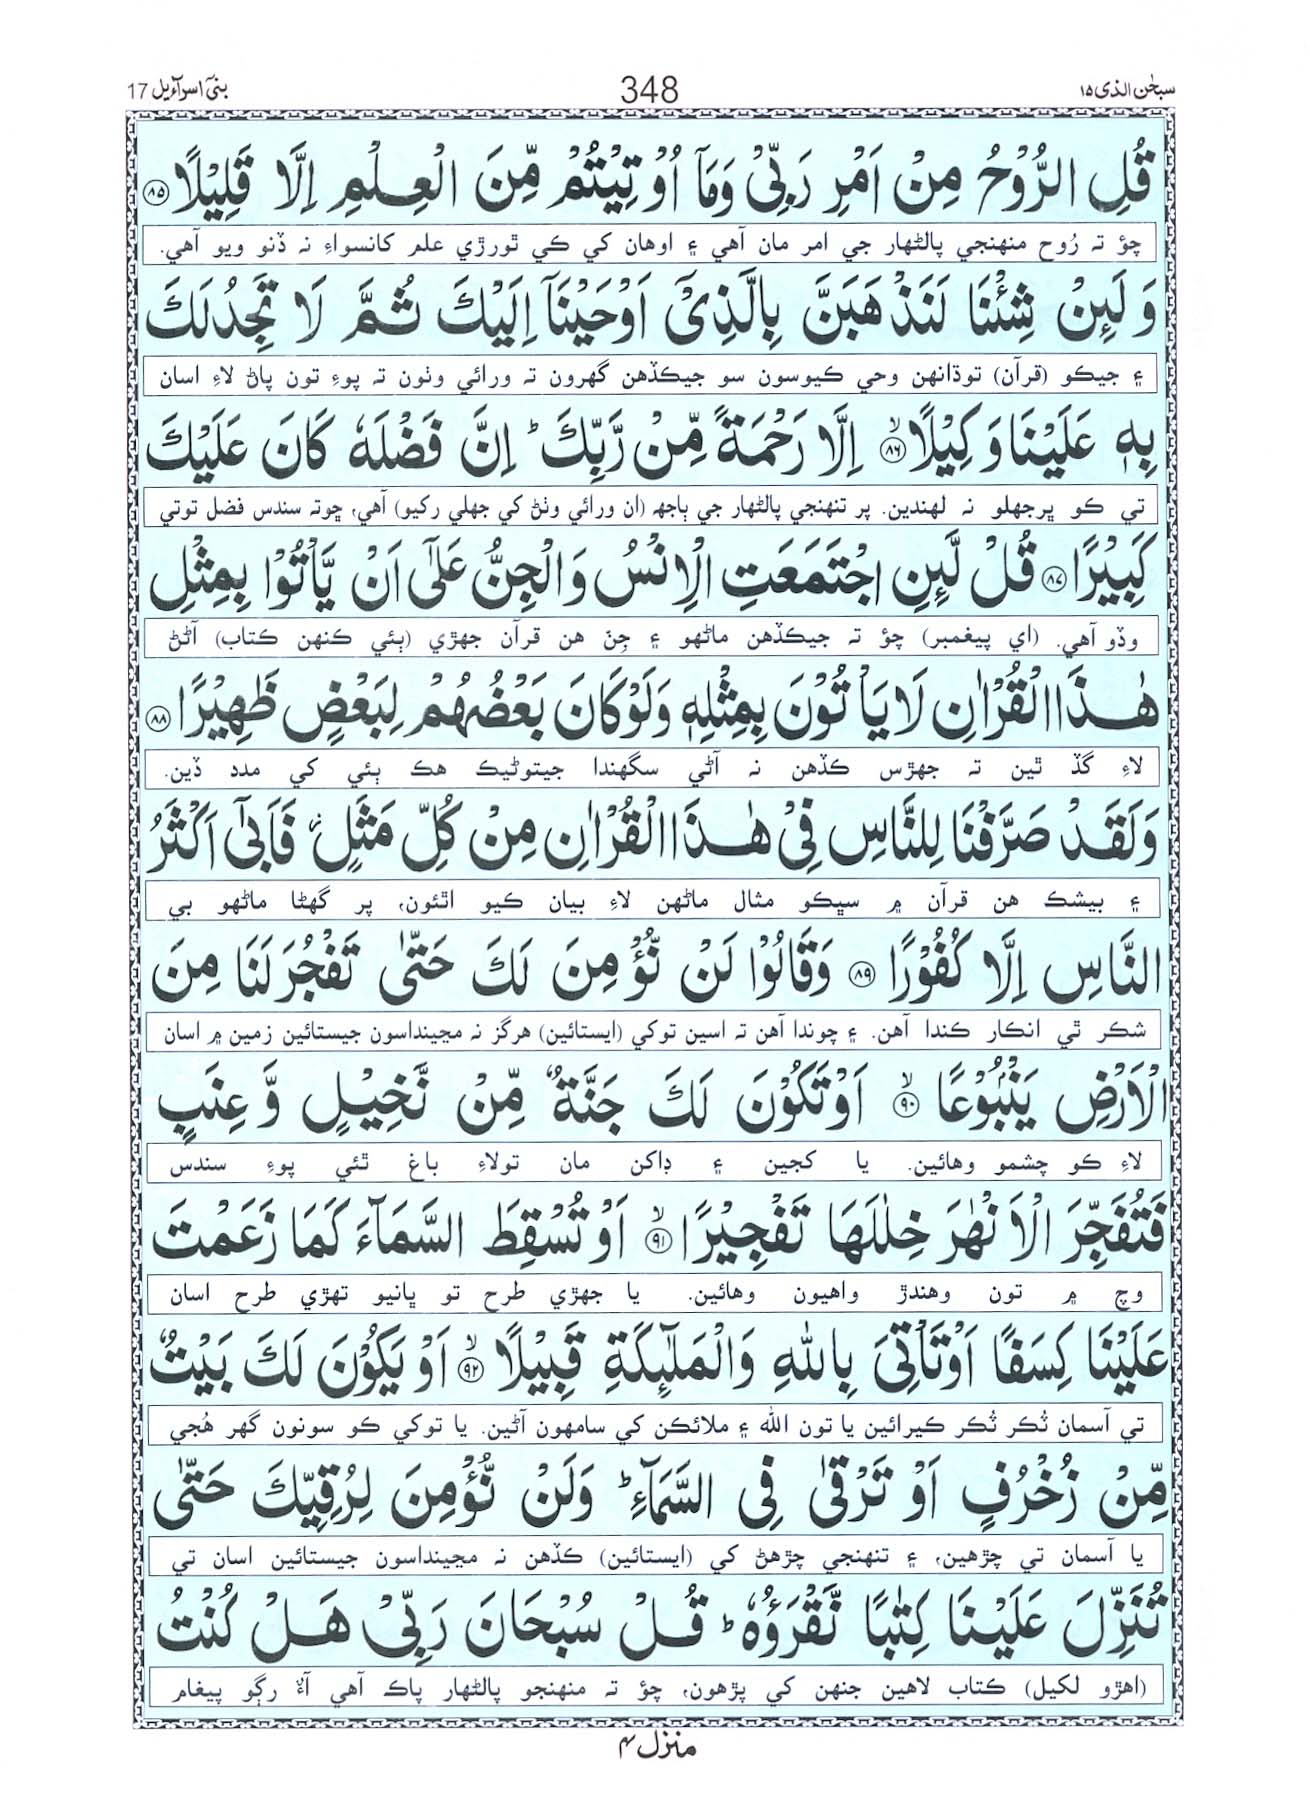 سبحٰن الذی ۱۵
348
بنیٓ اسرآءیل 17
قُلِ الرُّوْحُ مِنْ اَمْرِ رَبِّیْ وَمَاۤ اُوْتِیْتُمْ مِّنَ الْعِلْمِ اِلَّا قَلِیْلًا ﴿۸۵﴾
چؤ ته رُوح منهنجي پالڻهار جي امر مان آهي ۽ اوهان کي ڪي ٿورڙي علم کانسواءِ نہ ڏنو ويو آهي.
وَلَىِٕنْ شِئْنَا لَنَذْهَبَنَّ بِالَّذِیْۤ اَوْحَیْنَاۤ اِلَیْكَ ثُمَّ لَا تَجِدُ لَكَ
۽ جيڪو (قرآن) توڏانهن وحي ڪيوسون سو جيڪڏهن گهرون ته ورائي وٺون ته پوءِ تون پاڻ لاءِ اسان
بِهٖ عَلَیْنَا وَكِیْلًا ﴿ۙ۸۶﴾ اِلَّا رَحْمَةً مِّنْ رَّبِّكَ ؕ اِنَّ فَضْلَهٗ كَانَ عَلَیْكَ
تي ڪو ڀرجهلو نہ لهندين. پر تنهنجي پالڻهار جي ٻاجهہ (ان ورائي وٺڻ کي جهلي رکيو) آهي، ڇوتہ سندس فضل توتي
كَبِیْرًا ﴿۸۷﴾ قُلْ لَّىِٕنِ اجْتَمَعَتِ الْاِنْسُ وَالْجِنُّ عَلٰۤی اَنْ یَّاْتُوْا بِمِثْلِ
وڏو آهي. (اي پيغمبر) چؤ ته جيڪڏهن ماڻهو ۽ جِنّ هن قرآن جهڙي (ٻئي ڪنهن ڪتاب) آڻڻ
هٰذَا الْقُرْاٰنِ لَا یَاْتُوْنَ بِمِثْلِهٖ وَلَوْ كَانَ بَعْضُهُمْ لِبَعْضٍ ظَهِیْرًا ﴿۸۸﴾
لاءِ گڏ ٿين ته جهڙس ڪڏهن نہ آڻي سگهندا جيتوڻيڪ هڪ ٻئي کي مدد ڏين.
وَلَقَدْ صَرَّفْنَا لِلنَّاسِ فِیْ هٰذَا الْقُرْاٰنِ مِنْ كُلِّ مَثَلٍ ؗ فَاَبٰۤی اَكْثَرُ
۽ بيشڪ هن قرآن ۾ سڀڪو مثال ماڻهن لاءِ بيان ڪيو اٿئون، پر گهڻا ماڻهو بي
النَّاسِ اِلَّا كُفُوْرًا ﴿۸۹﴾ وَقَالُوْا لَنْ نُّؤْمِنَ لَكَ حَتّٰی تَفْجُرَ لَنَا مِنَ
شڪر ٿي انڪار ڪندا آهن. ۽ چوندا آهن ته اسين توکي (ايستائين) هرگز نہ مڃينداسون جيستائين زمين ۾ اسان
الْاَرْضِ یَنْۢبُوْعًا ﴿ۙ۹۰﴾ اَوْ تَكُوْنَ لَكَ جَنَّةٌ مِّنْ نَّخِیْلٍ وَّعِنَبٍ
لاءِ ڪو چشمو وهائين. يا کجين ۽ ڊاکن مان تولاءِ باغ ٿئي پوءِ سندس
فَتُفَجِّرَ الْاَنْهٰرَ خِلٰلَهَا تَفْجِیْرًا ﴿ۙ۹۱﴾ اَوْ تُسْقِطَ السَّمَآءَ كَمَا زَعَمْتَ
وچ ۾ تون وهندڙ واهيون وهائين. يا جهڙي طرح تو ڀانيو تهڙي طرح اسان
عَلَیْنَا كِسَفًا اَوْ تَاْتِیَ بِاللّٰهِ وَالْمَلٰٓىِٕكَةِ قَبِیْلًا ﴿ۙ۹۲﴾ اَوْ یَكُوْنَ لَكَ بَیْتٌ
تي آسمان ٽُڪر ٽُڪر ڪيرائين يا تون الله ۽ ملائڪن کي سامهون آڻين. يا توکي ڪو سونون گهر هُجي
مِّنْ زُخْرُفٍ اَوْ تَرْقٰی فِی السَّمَآءِ ؕ وَلَنْ نُّؤْمِنَ لِرُقِیِّكَ حَتّٰی
يا آسمان تي چڙهين، ۽ تنهنجي چڙهڻ کي (ايستائين) ڪڏهن نہ مڃينداسون جيستائين اسان تي
تُنَزِّلَ عَلَیْنَا كِتٰبًا نَّقْرَؤُهٗ ؕ قُلْ سُبْحَانَ رَبِّیْ هَلْ كُنْتُ
(اهڙو لکيل) ڪتاب لاهين جنهن کي پڙهون، چؤ ته منهنجو پالڻهار پاڪ آهي آءٌ رڳو پيغام
منزل ۴